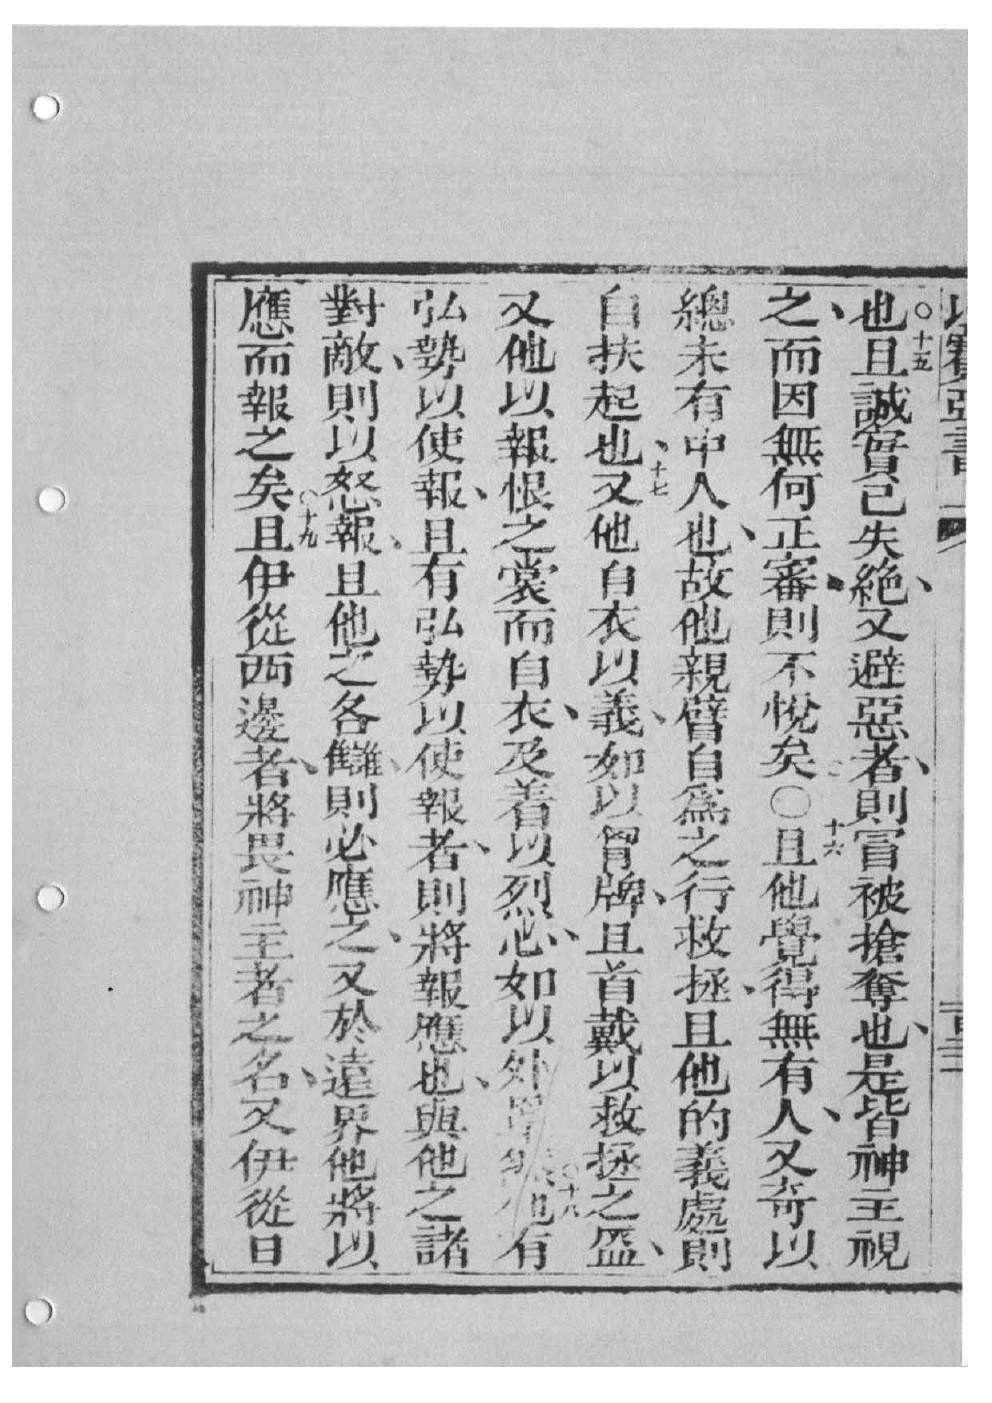 以賽亞書 一百三
也○十五且誠實已失絶、又避惡者、則冒被搶奪也、是皆神主視
之、而因無何正審、則不悅矣○十六且他覺得無有人、又奇以
總未有中人也、故他親臂自爲之行救拯、且他的義處則
自扶起也、十七又他自衣以義、如以胷牌、且首戴以救拯之盔、
又他以報恨之裳而自衣、及着以烈心、如以外○十八他有
弘勢以使報、且有弘勢以使報者、則將報應也、與他之諸
對敵、則以怒報、且他之各讎、則必應之、又於遠界他將以
應而報之矣○十九且伊從西邊者、將畏神主者之名、又伊從日